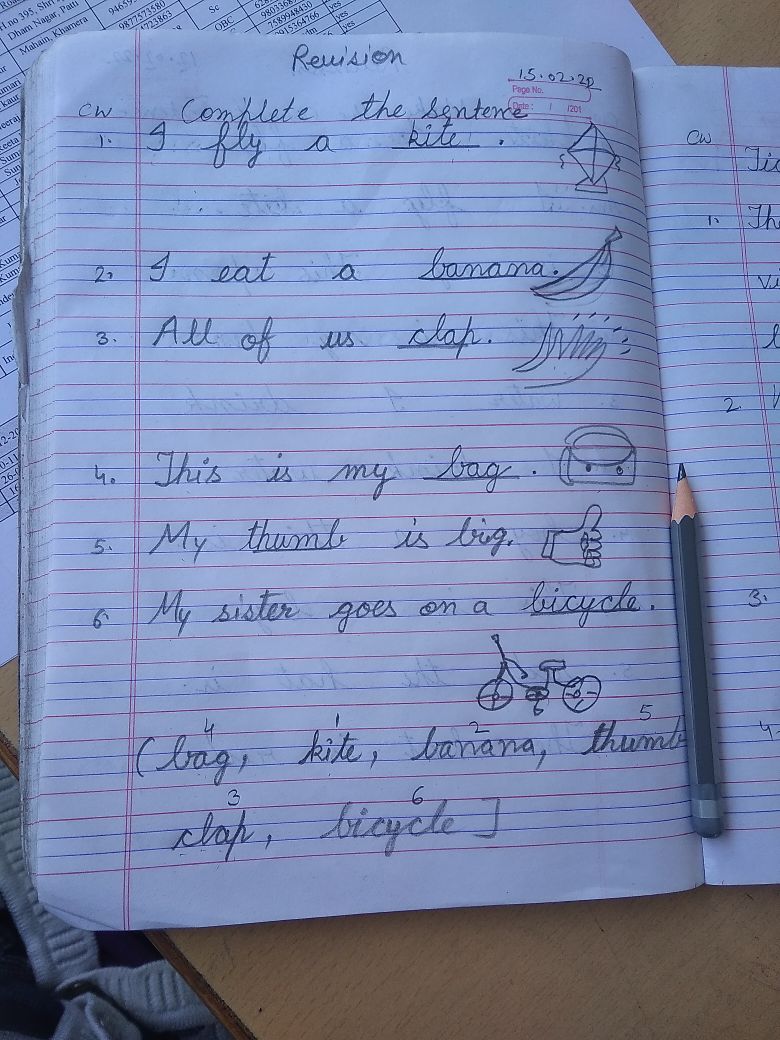 Revision
15.02.22
Page No.
Date: / /201
CW Complete the sentence
1. I fly a kite.
2. I eat a banana.
3. All of us clap.
4. This is my bag.
5. My thumb is big.
6. My sister goes on a bicycle.
6
4 1 2 5
(bag, kite, banana, thumb
3 6
clap, bicycle]
CW
1. Th
2.
3.
4.
Dham Nagar, Pati
Mahain, Khamera
9877573580
Sc
OBC
7589948430
yes
yes